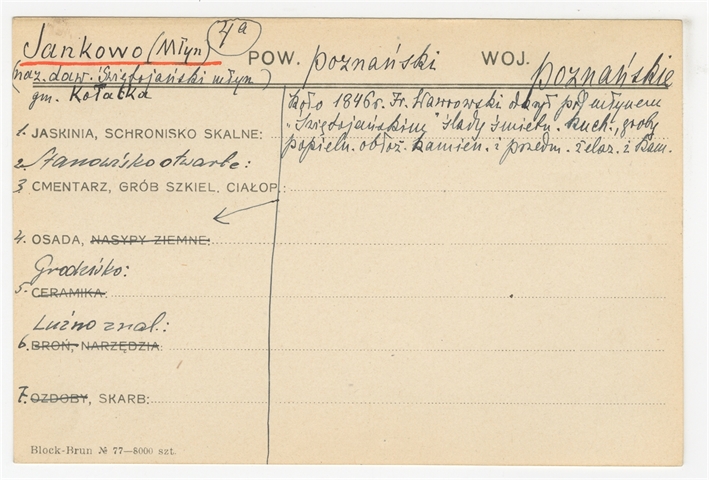 Jankowo (Młyn) 4a POW. poznański WOJ. poznańskie
(naz. daw. Świętojański młyn)
gm. Kołatka
Koło 1846 r. Fr. Wawrowski odkrył pod młynem
"Świętojańskim" ślady śmietn. kuch., groby
popieln. obłoż. kamień. i przedm. żelaz. i kam.
1. JASKINIA, SCHRONISKO SKALNE:
2. Stanowisko otwarte:
3. CMENTARZ, GRÓB SZKIEL. CIAŁOP.:
4. OSADA, NASYPY ZIEMNE:
Grodzisko:
5. CERAMIKA
Luźno znal.:
6. BROŃ, NARZĘDZIA
7. OZDOBY, SKARB:
Block-Brun № 77—8000 szt.